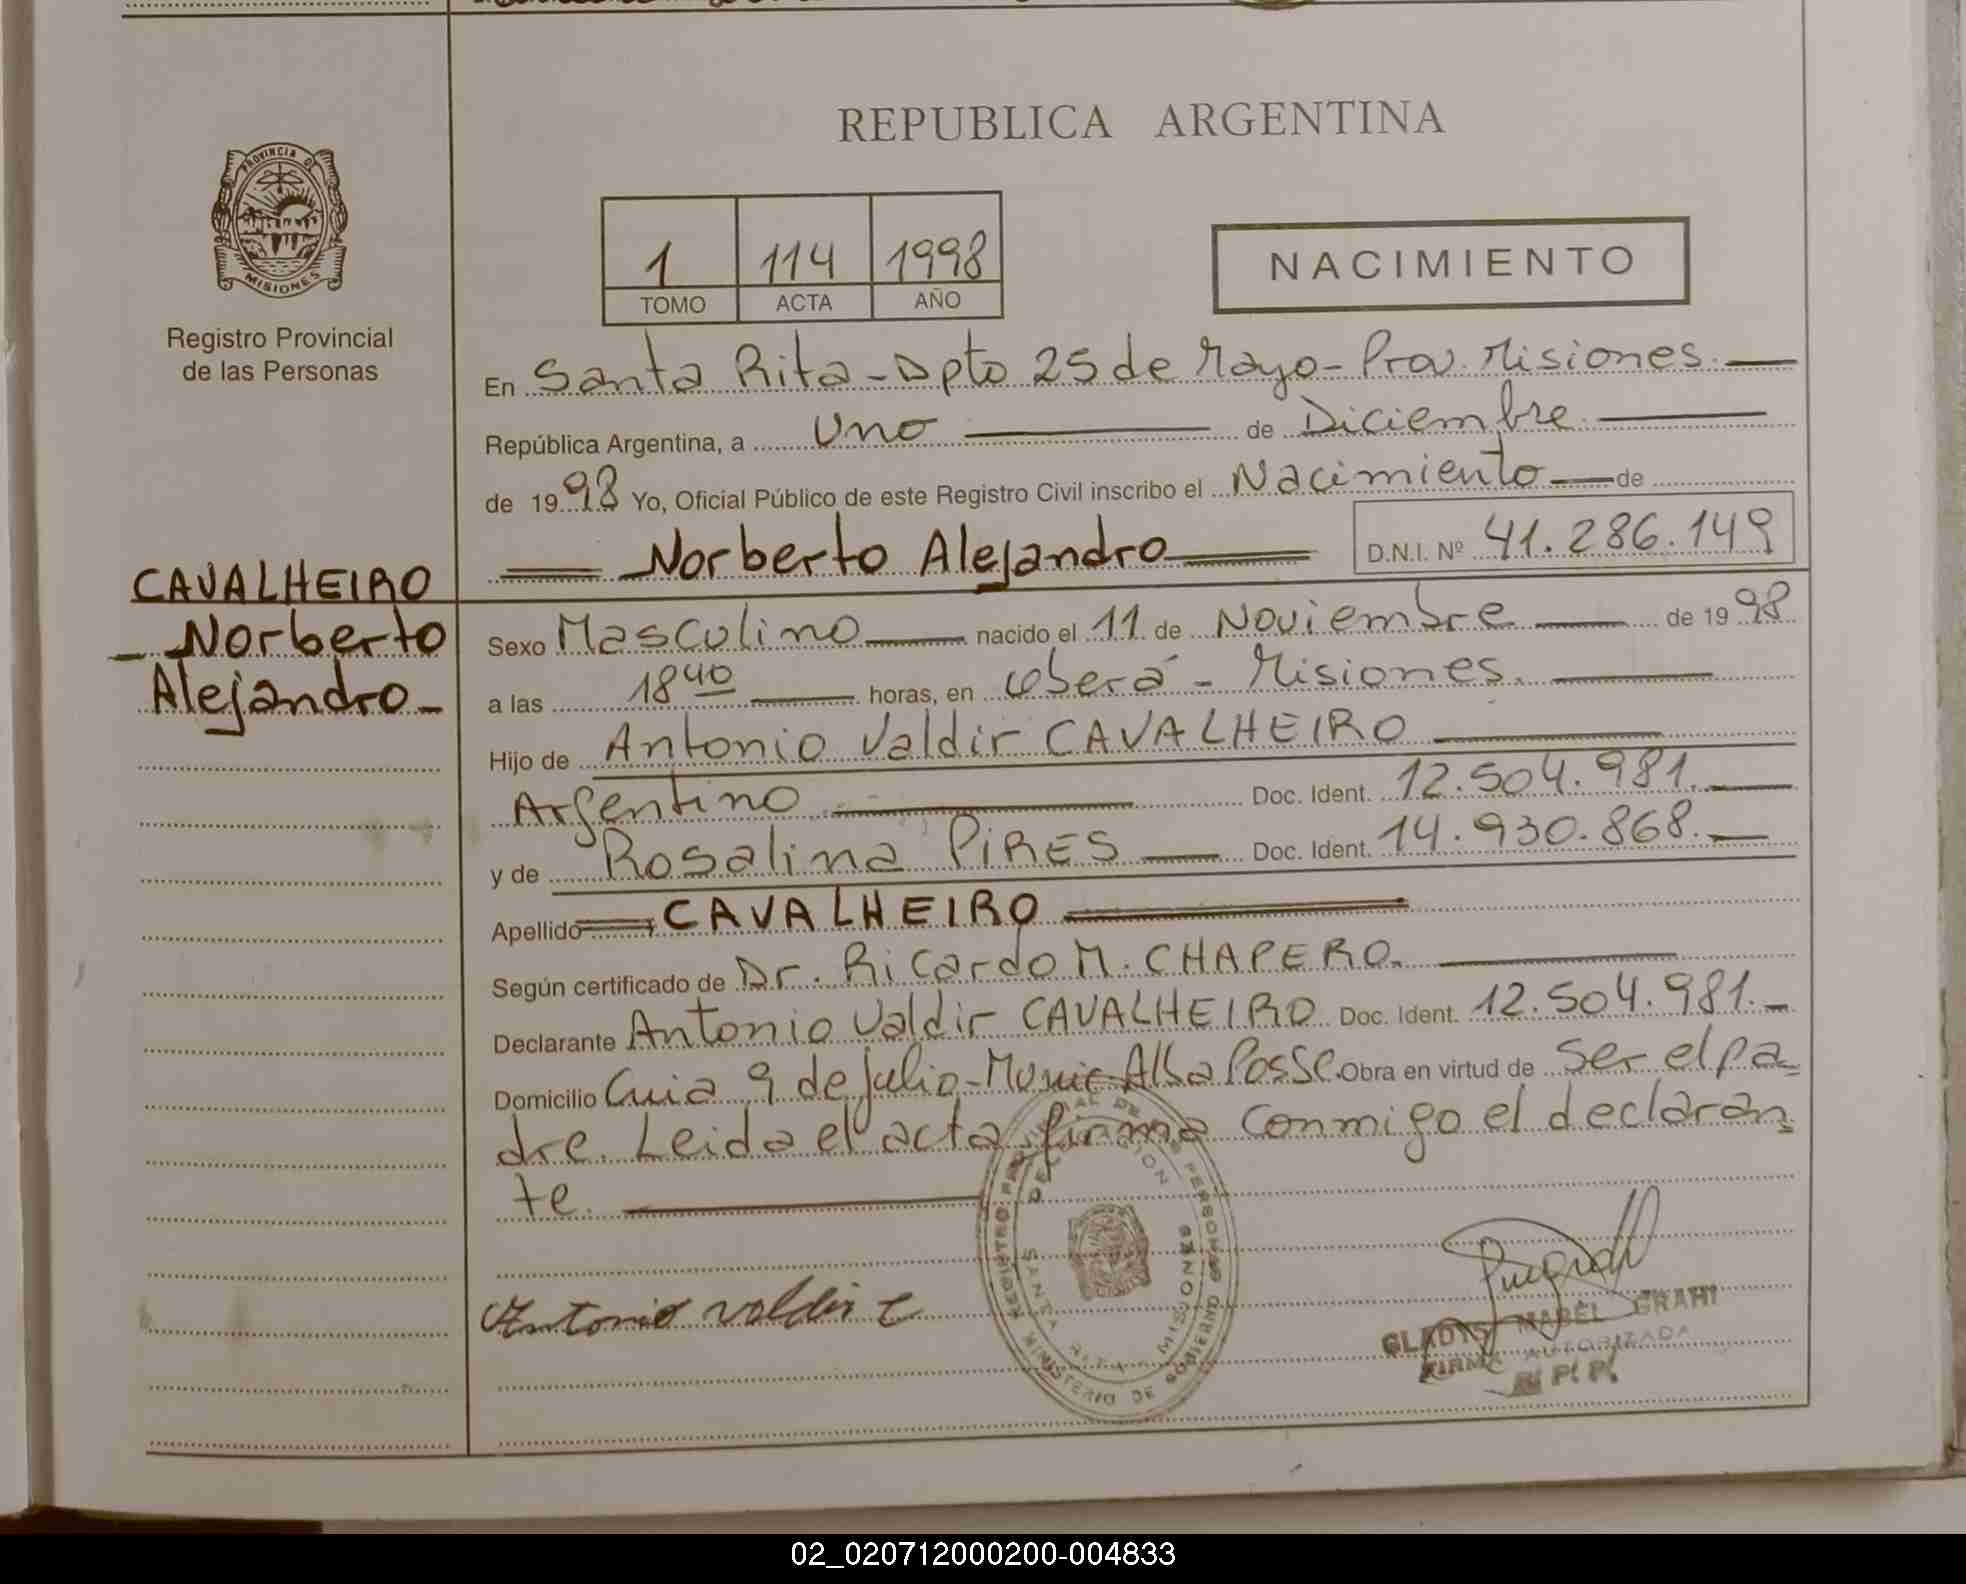 REPUBLICA ARGENTINA
PROVINCIA DE
MISIONES
Registro Provincial
de las Personas
1 114 1998
TOMO ACTA AÑO
NACIMIENTO
En Santa Rita - Dpto 25 de Mayo - Prov. Misiones.
República Argentina, a Uno de Diciembre
de 1998 Yo, Oficial Público de este Registro Civil inscribo el Nacimiento de
Norberto Alejandro D.N.I. Nº 41.286.149
CAVALHEIRO
Norberto
Alejandro
Sexo Masculino nacido el 11 de Noviembre de 1998
a las 18 40 horas, en Oberá - Misiones.
Hijo de Antonio Valdir CAVALHEIRO
Argentino Doc. Ident. 12.504.981.
y de Rosalina PIRES Doc. Ident. 14.930.868.
Apellido CAVALHEIRO
Según certificado de Dr. Ricardo M. CHAPERO.
Declarante Antonio Valdir CAVALHEIRO Doc. Ident. 12.504.981.
Domicilio Cuia 9 de Julio - Munic Alba Posse Obra en virtud de Ser el pa
dre. Leida el acta firma Conmigo el declaran
te.
Antonio Valdir C
REGISTRO PROVINCIAL DE LAS PERSONAS
MINISTERIO DE GOBIERNO
SANTA RITA MISIONES
GLADYS MABEL GRAHI
FIRMA AUTORIZADA
R. P. P.
02_020712000200-004833